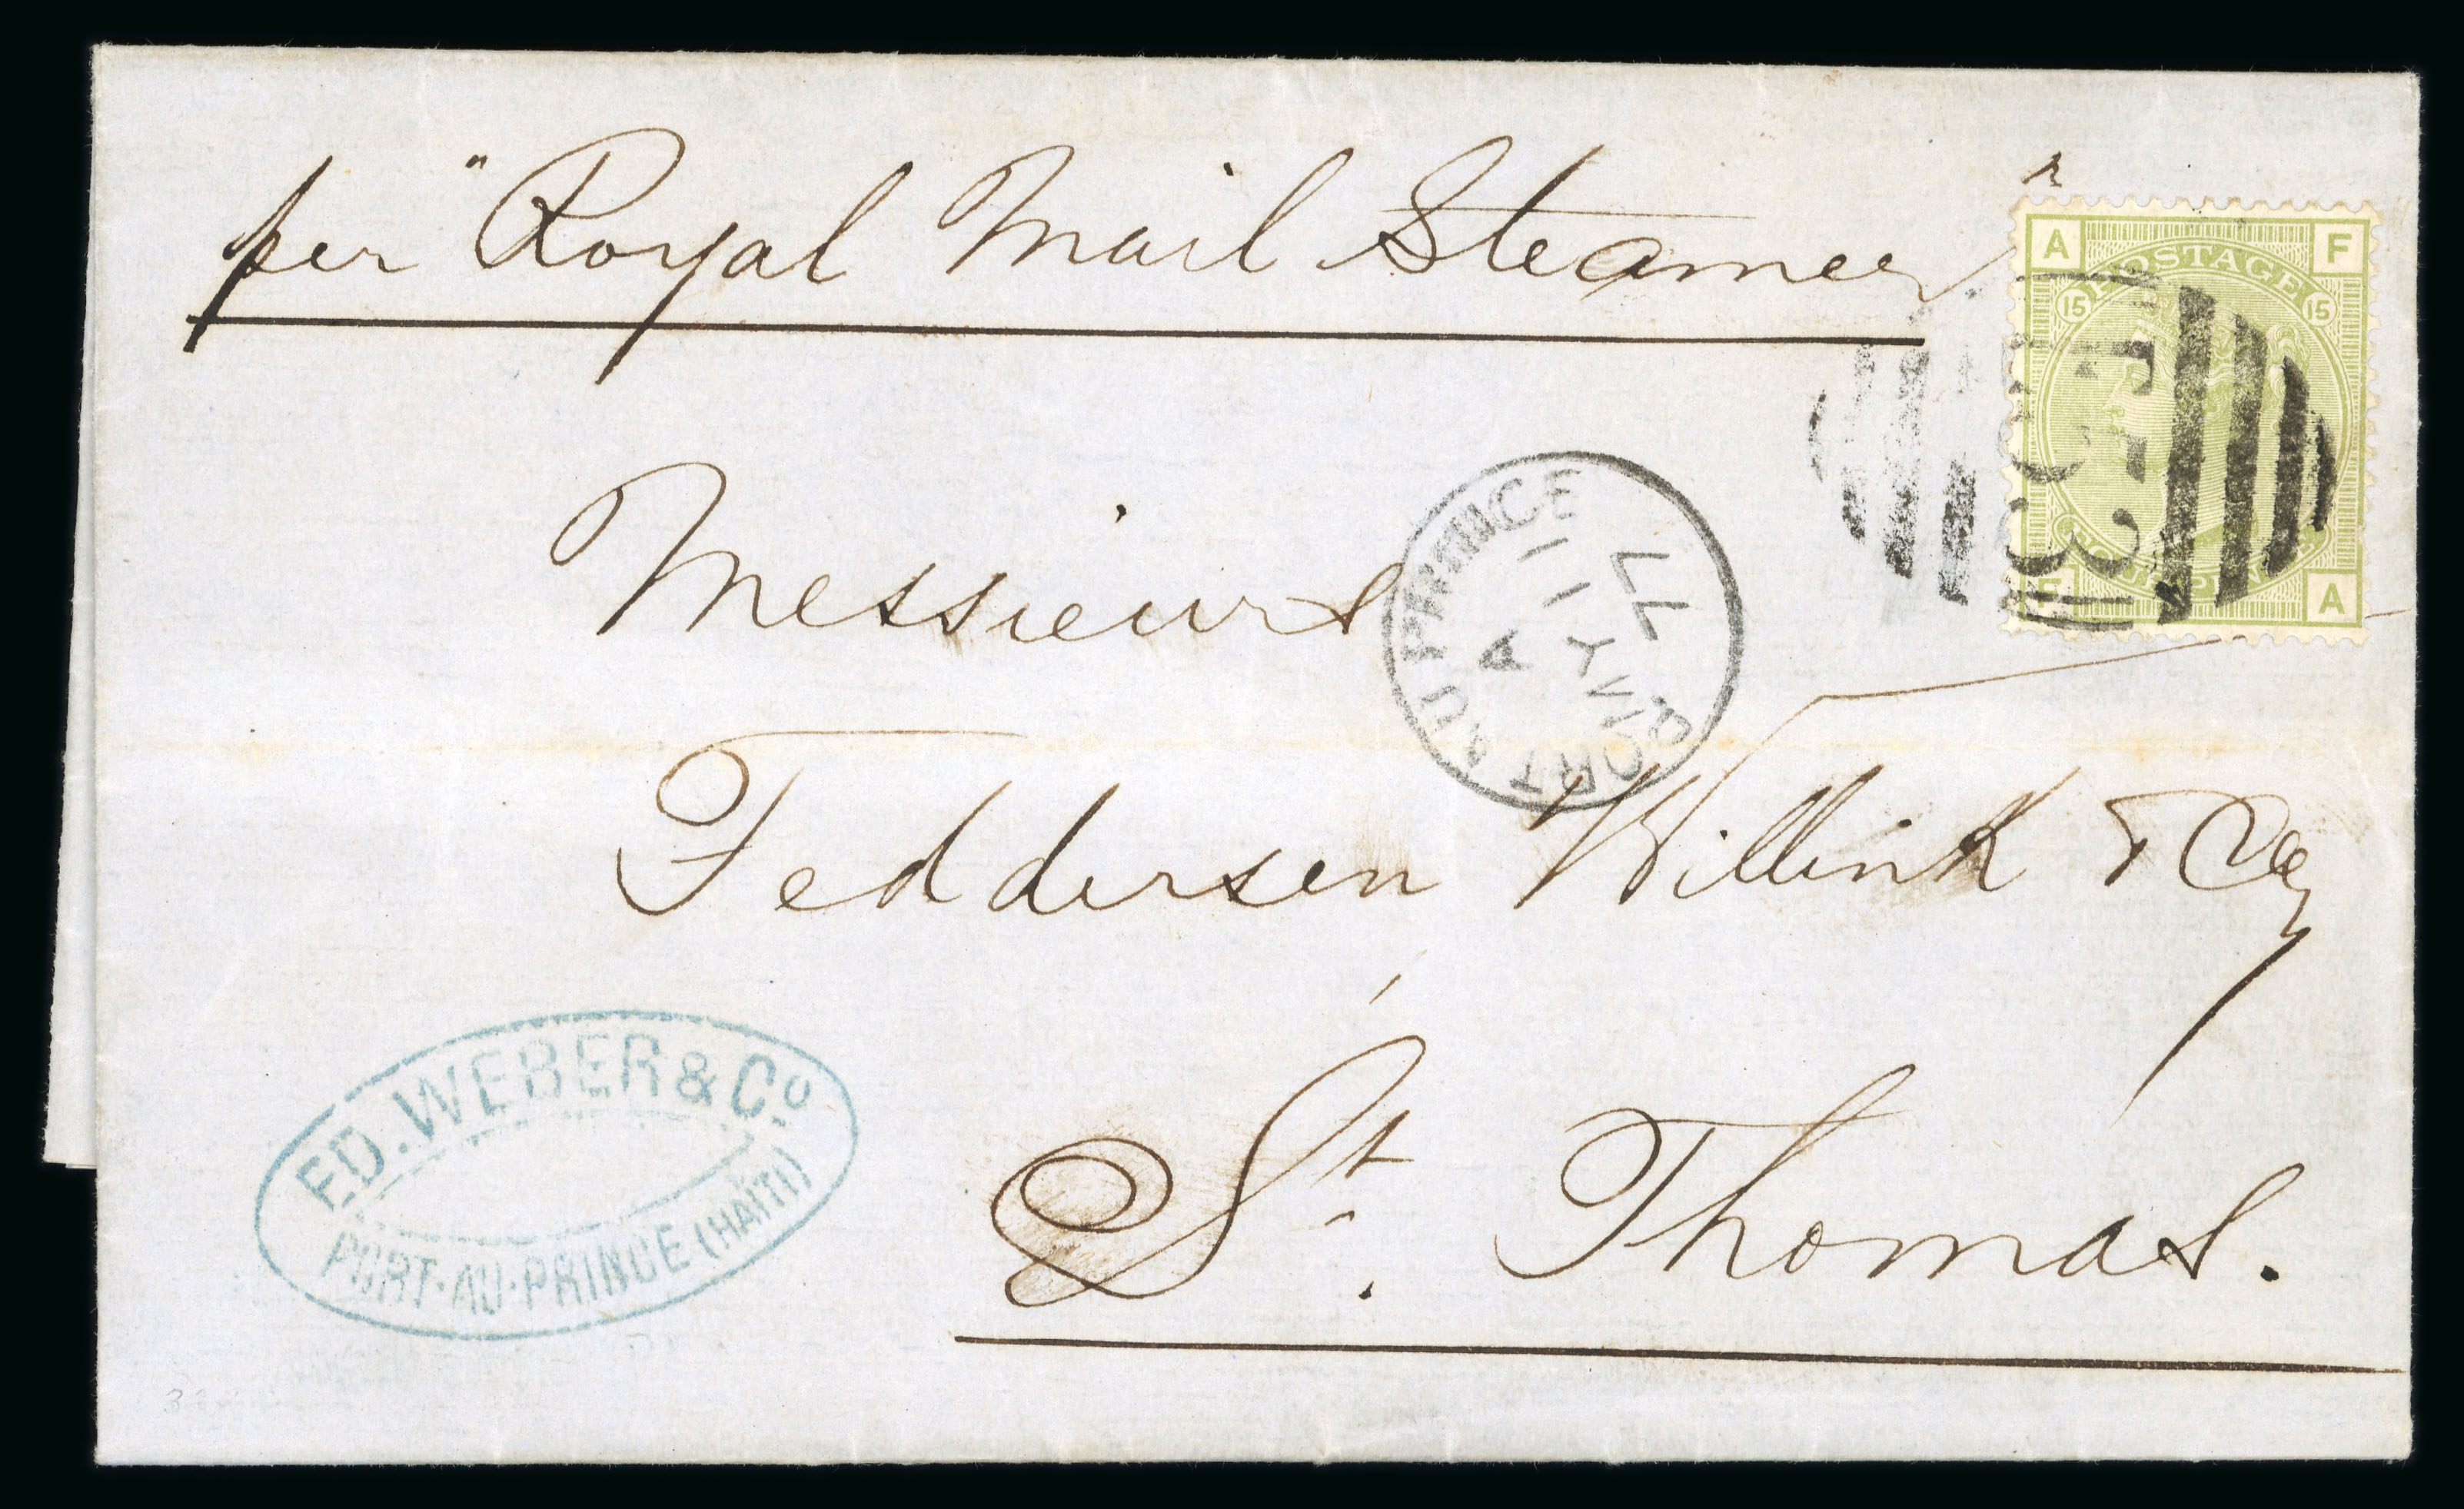 per "Royal Mail Steamer"
A F
POSTAGE
15 15
E53
FOUR PENCE
F A
Messieurs
PORT AU PRINCE
A
MY 11
77
Feddersen Willink & Co
St. Thomas.
ED. WEBER & Co
PORT-AU-PRINCE (HAITI)